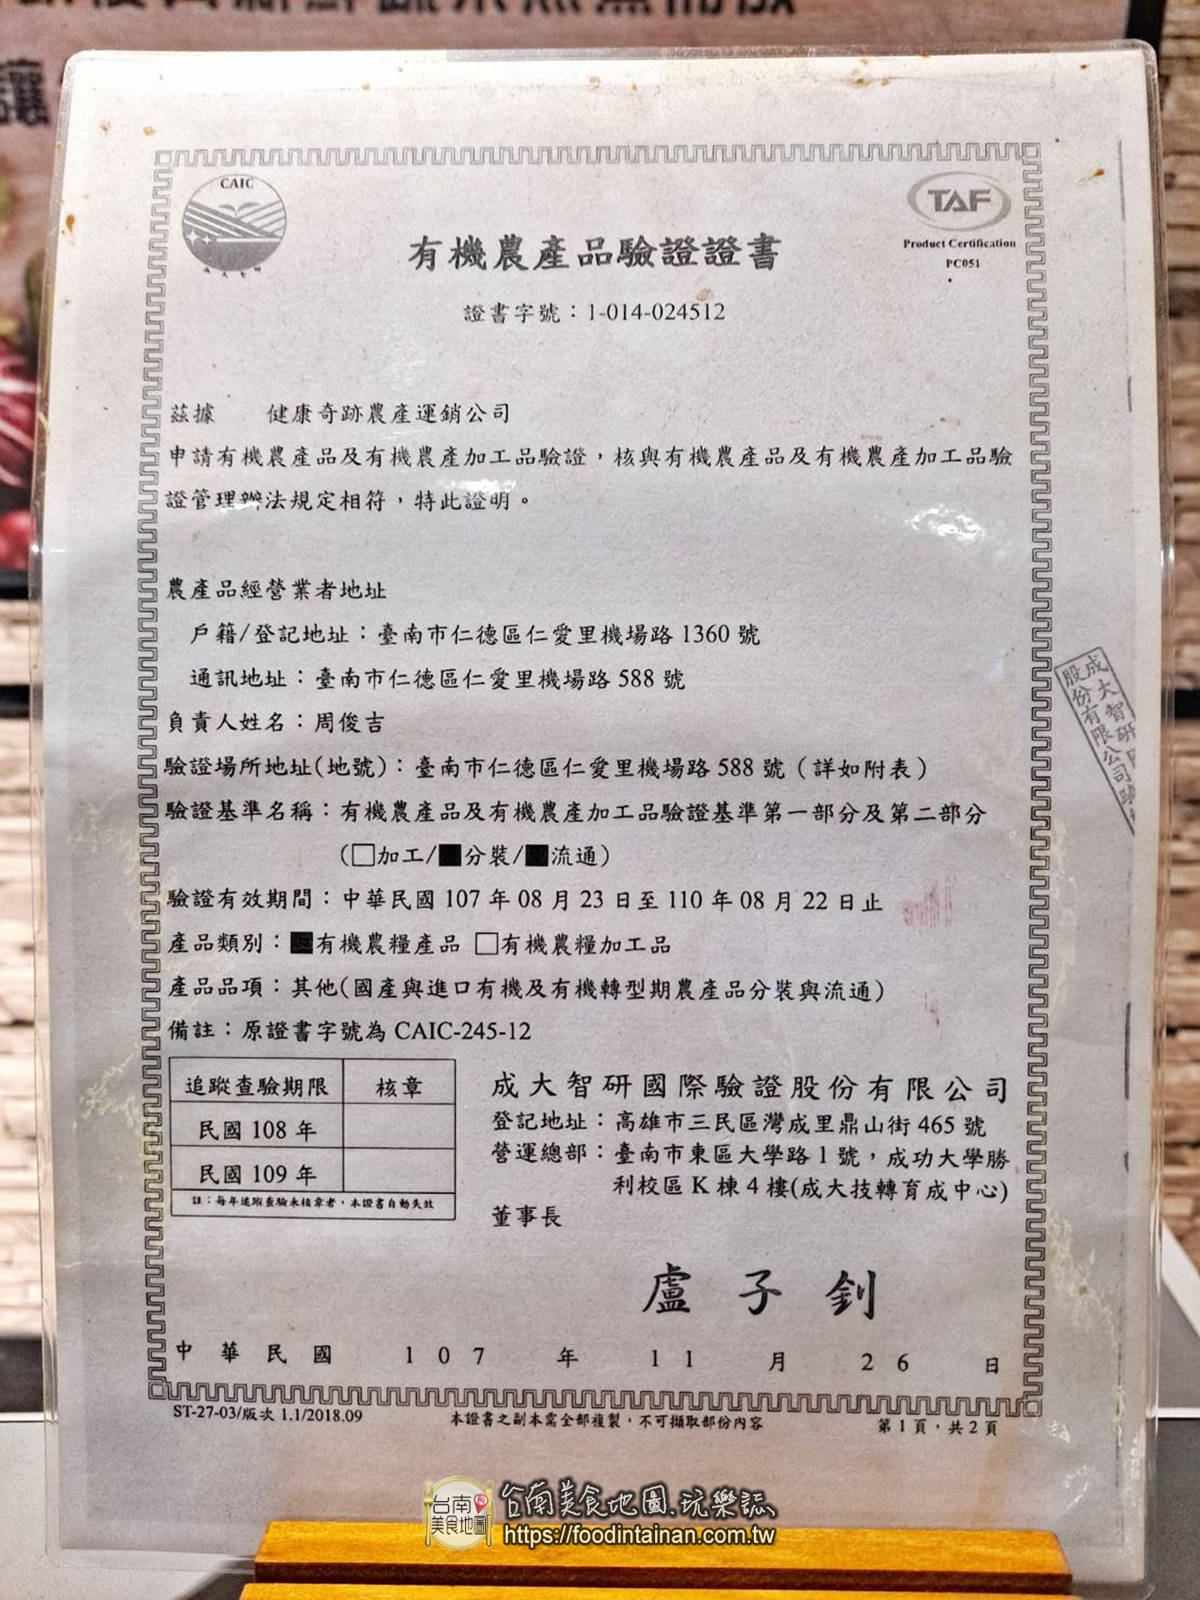 讓
CAIC
TAF
Product Certification
PC051
有機農產品驗證證書
證書字號：1-014-024512
茲據 健康奇跡農產運銷公司
申請有機農產品及有機農產加工品驗證，核與有機農產品及有機農產加工品驗
證管理辦法規定相符，特此證明。
農產品經營業者地址
戶籍/登記地址：臺南市仁德區仁愛里機場路 1360 號
通訊地址：臺南市仁德區仁愛里機場路 588 號
負責人姓名：周俊吉
驗證場所地址(地號)：臺南市仁德區仁愛里機場路 588 號（詳如附表）
驗證基準名稱：有機農產品及有機農產加工品驗證基準第一部分及第二部分
（□加工/■分裝/■流通）
驗證有效期間：中華民國 107 年 08 月 23 日至 110 年 08 月 22 日止
產品類別：■有機農糧產品 □有機農糧加工品
產品品項：其他(國產與進口有機及有機轉型期農產品分裝與流通)
備註：原證書字號為 CAIC-245-12
追蹤查驗期限 核章
民國 108 年
民國 109 年
註：每年追蹤查驗未核章者，本證書自動失效
成大智研國際驗證股份有限公司
登記地址：高雄市三民區灣成里鼎山街 465 號
營運總部：臺南市東區大學路 1 號，成功大學勝
利校區 K 棟 4 樓(成大技轉育成中心)
董事長
盧子釗
中華民國 107 年 11 月 26 日
ST-27-03/版次 1.1/2018.09
本證書之副本需全部複製，不可擷取部份內容
第 1 頁，共 2 頁
成大智研
股份有限公司
台南
美食地圖
台南美食地圖.玩樂誌
https://foodintainan.com.tw